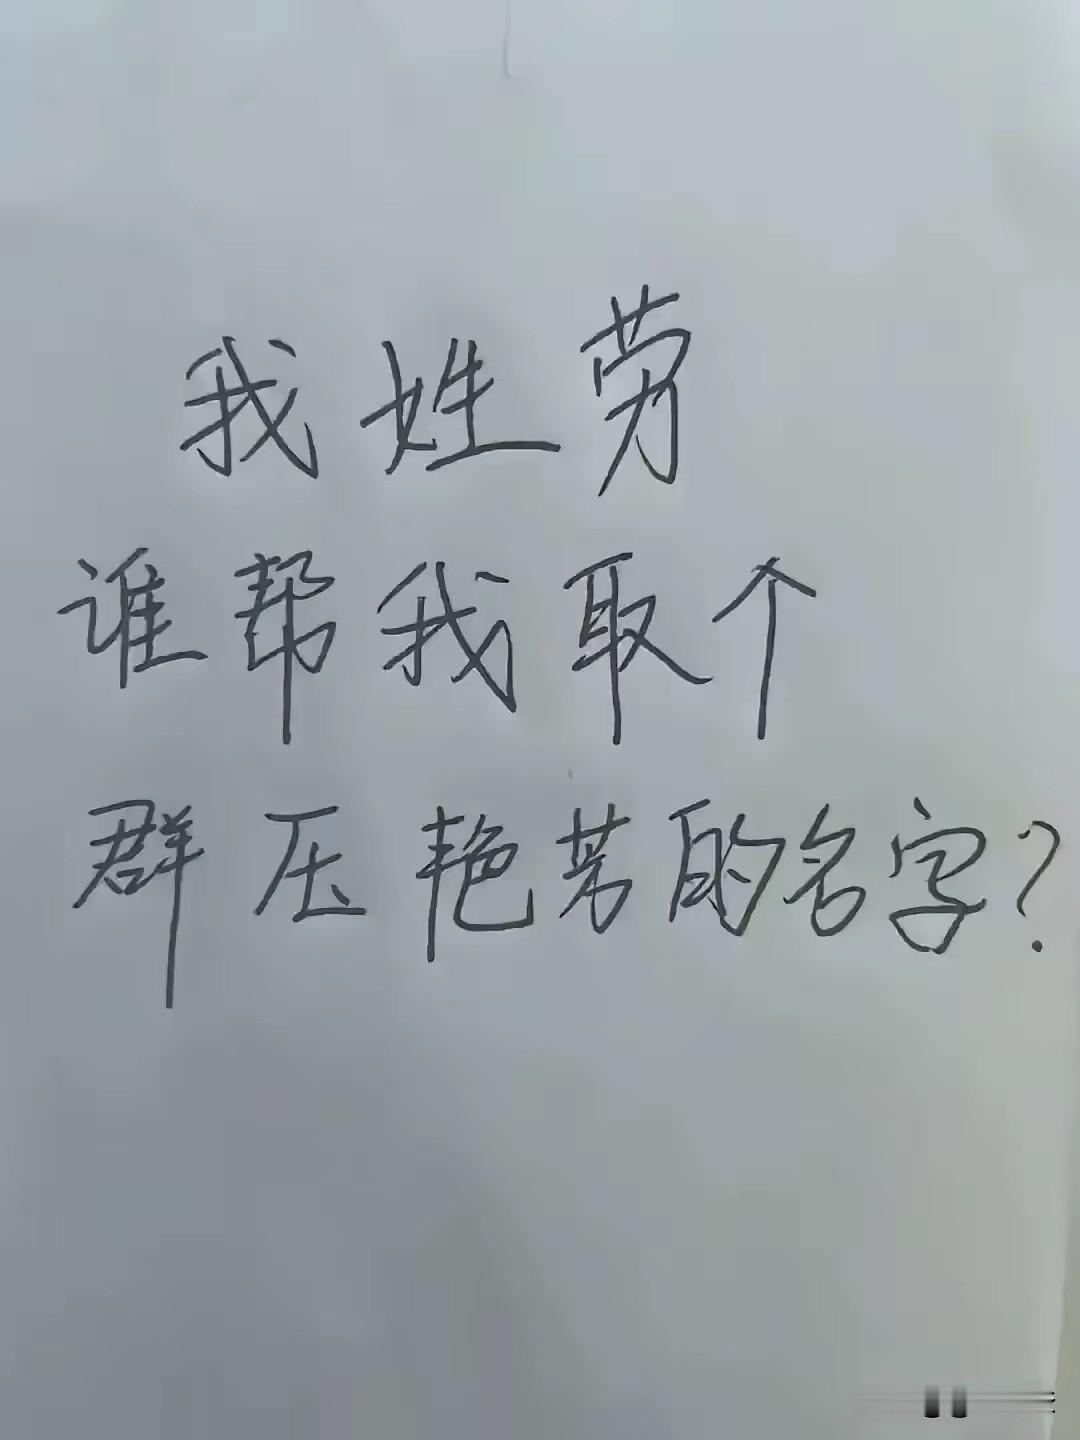 我姓劳
谁帮我取个
群压艳芳的名字?